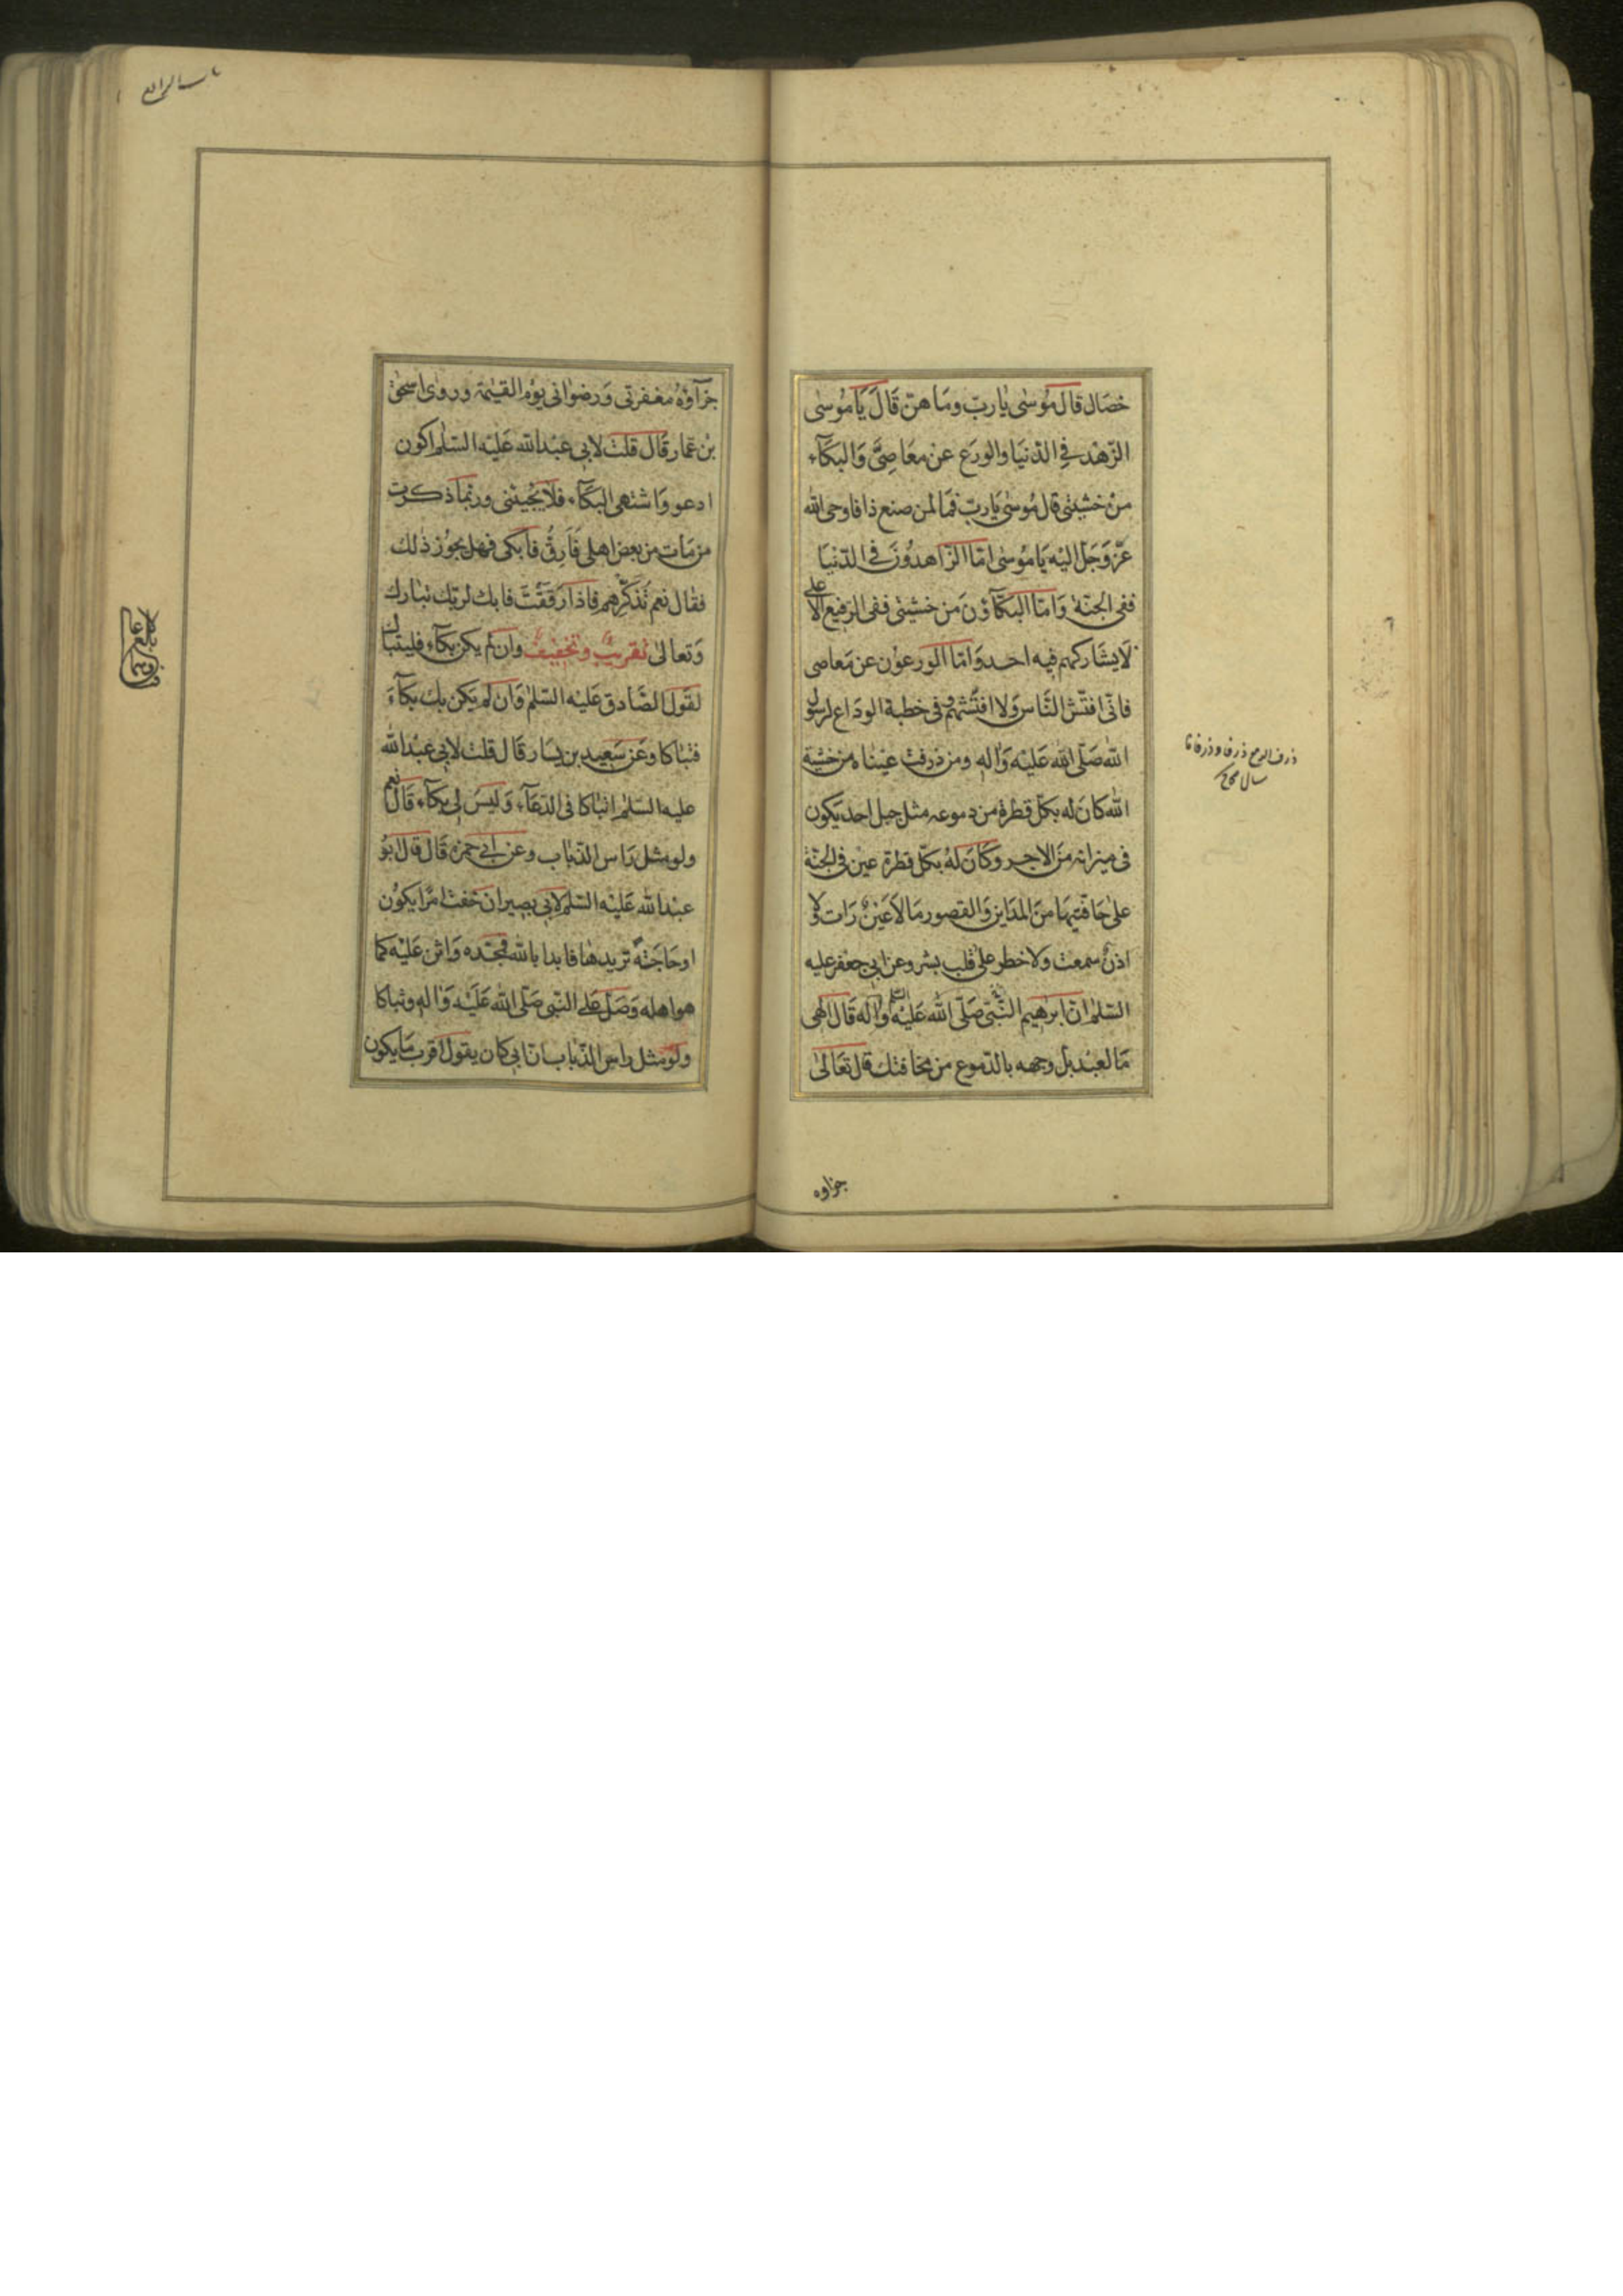 خصال قال موسى يا رب وما هن قال يا موسى
الزهد في الدنيا والورع عن معاصيَّ والبكاء
من خشيتي قال موسى يا رب فما لمن صنع ذا فاوحى الله
عز وجل اليه يا موسى اما الزاهدون في الدنيا
ففي الجنة واما البكاؤن من خشيتي ففي الرفيع الاعلى
لا يشاركهم فيه احد واما الورعون عن معاصي
فاني افتش الناس ولا افتشهم وفى خطبة الوداع لرسول
الله صلى الله عليه واله ومن ذرفت عيناه من خشية
الله كان له بكل قطرة من دموعه مثل جبل احد يكون
فى ميزانه من الاجر وكان له بكل قطرة عين في الجنة
على حافتيها من المداين والقصور ما لا عين رات ولا
اذن سمعت ولا خطر على قلب بشر وعن ابي جعفر عليه
السلم ان ابرهيم النبي صلى الله عليه واله قال الهى
ما لعبد بل وجهه بالدموع من مخافتك قال تعالى
جزاوه
ذرف الدمع ذرفا و ذرفانا
سال
جزآؤه مغفرتي ورضواني يوم القيمة وروى اسحق
بن عمار قال قلت لابي عبد الله عليه السلم اكون
ادعو واشتهى البكاء فلا يجيئني وربما ذكرت
من مات من بعض اهلي فارق فابكى فهل يجوز ذلك
فقال نعم تذكرهم فاذا رققت فابك لربك تبارك
وتعالى تقريب وتخفيف وان لم يكن بكاء فليتباك
لقول الصادق عليه السلم وان لم يكن بك بكاء
فتباكا وعن سعيد بن يسار قال قلت لابي عبد الله
عليه السلم اتباكا فى الدعاء وليس لي بكاء قال نعم
ولو مثل راس الذباب وعن ابي حمزة قال قال ابو
عبد الله عليه السلم لابي بصير ان خفت امرا يكون
او حاجة تريدها فابدا بالله فمجده واثن عليه كما
هو اهله وصل على النبي صلى الله عليه واله وتباكا
ولو مثل راس الذباب ان ابي كان يقول اقرب ما يكون